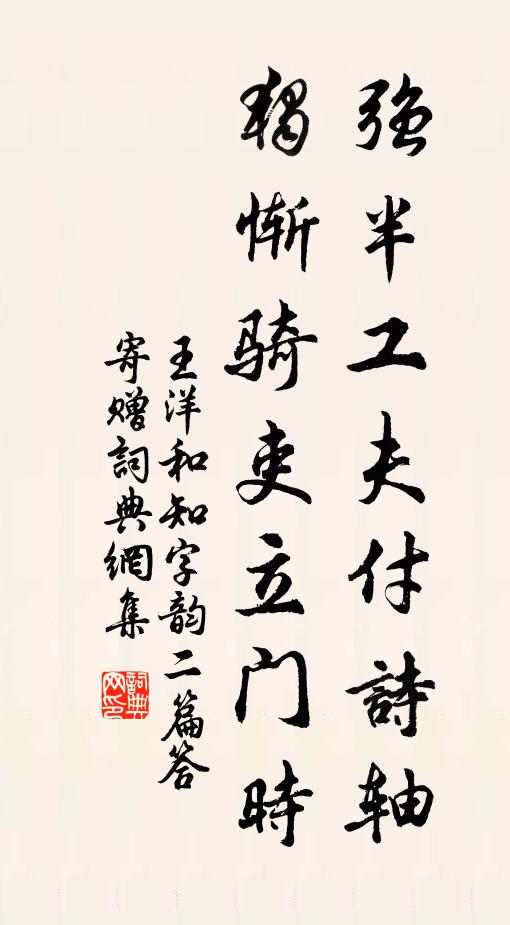 強半工夫付詩軸
獨慚騎吏立門時
王洋和知字韵二篇答
寄贈詞典網集
詞典网印